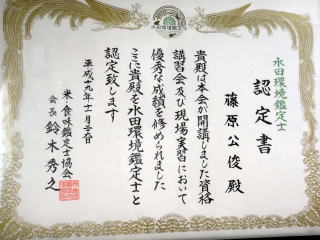 水田環境鑑定士
認定書
藤原公俊 殿
貴殿は本会が開講しました資格
講習会及び現場実習において
優秀な成績を修められました
ここに貴殿を水田環境鑑定士と
認定致します
平成十九年十一月三十日
米・食味鑑定士協会
会長 鈴木秀之